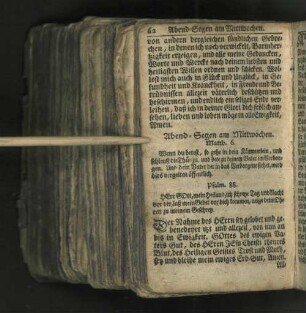 62 Abend-Segen am Mittwochen.
von andern dergleichen sündlichen Gebre-
chen, in denen ich noch verwickelt, Barmher-
tzigkeit erzeigen, und alle meine Gedancken,
Worte und Wercke nach deinem
heiligsten Willen ordnen und schicken. Wol-
lest mich auch in Glück und Unglück, in Ge-
sundheit und Kranckheit, in Freuden und Be-
trübnüssen allezeit väterlich beschützen und
beschirmen, und endlich ein seliges Ende ver-
leihen, daß ich in deiner
schen, lieben und loben möge in Ewigkeit,
Amen.
Abend-Segen am Mittwochen.
Matth. 6.
Wenn du betest, so gehe in dein Kämmerlein, und
schleuß die Thür zu, und bete zu deinem Vater im Verborge-
nen. Und dein Vater der in das Verborgene siehet, wird
dirs vergelten öffentlich.
Psalm. 88.
HErr GOtt, mein Heiland, ich schreye Tag und Nacht
vor dir, laß mein Gebet vor dich kommen, neige deine Oh-
ren zu meinem Geschrey.
Der Nahme des HErrn sey gelobet und ge-
benedeyet itzt und allezeit, von nun an
bis in Ewigkeit. GOttes des ewigen Va-
ters Gut, des HErrn JEsu Christi theures
Blut, des Heiligen Geistes Trost und Muth,
sey und bleibe mein ewiges Erb-Gut, Amen.